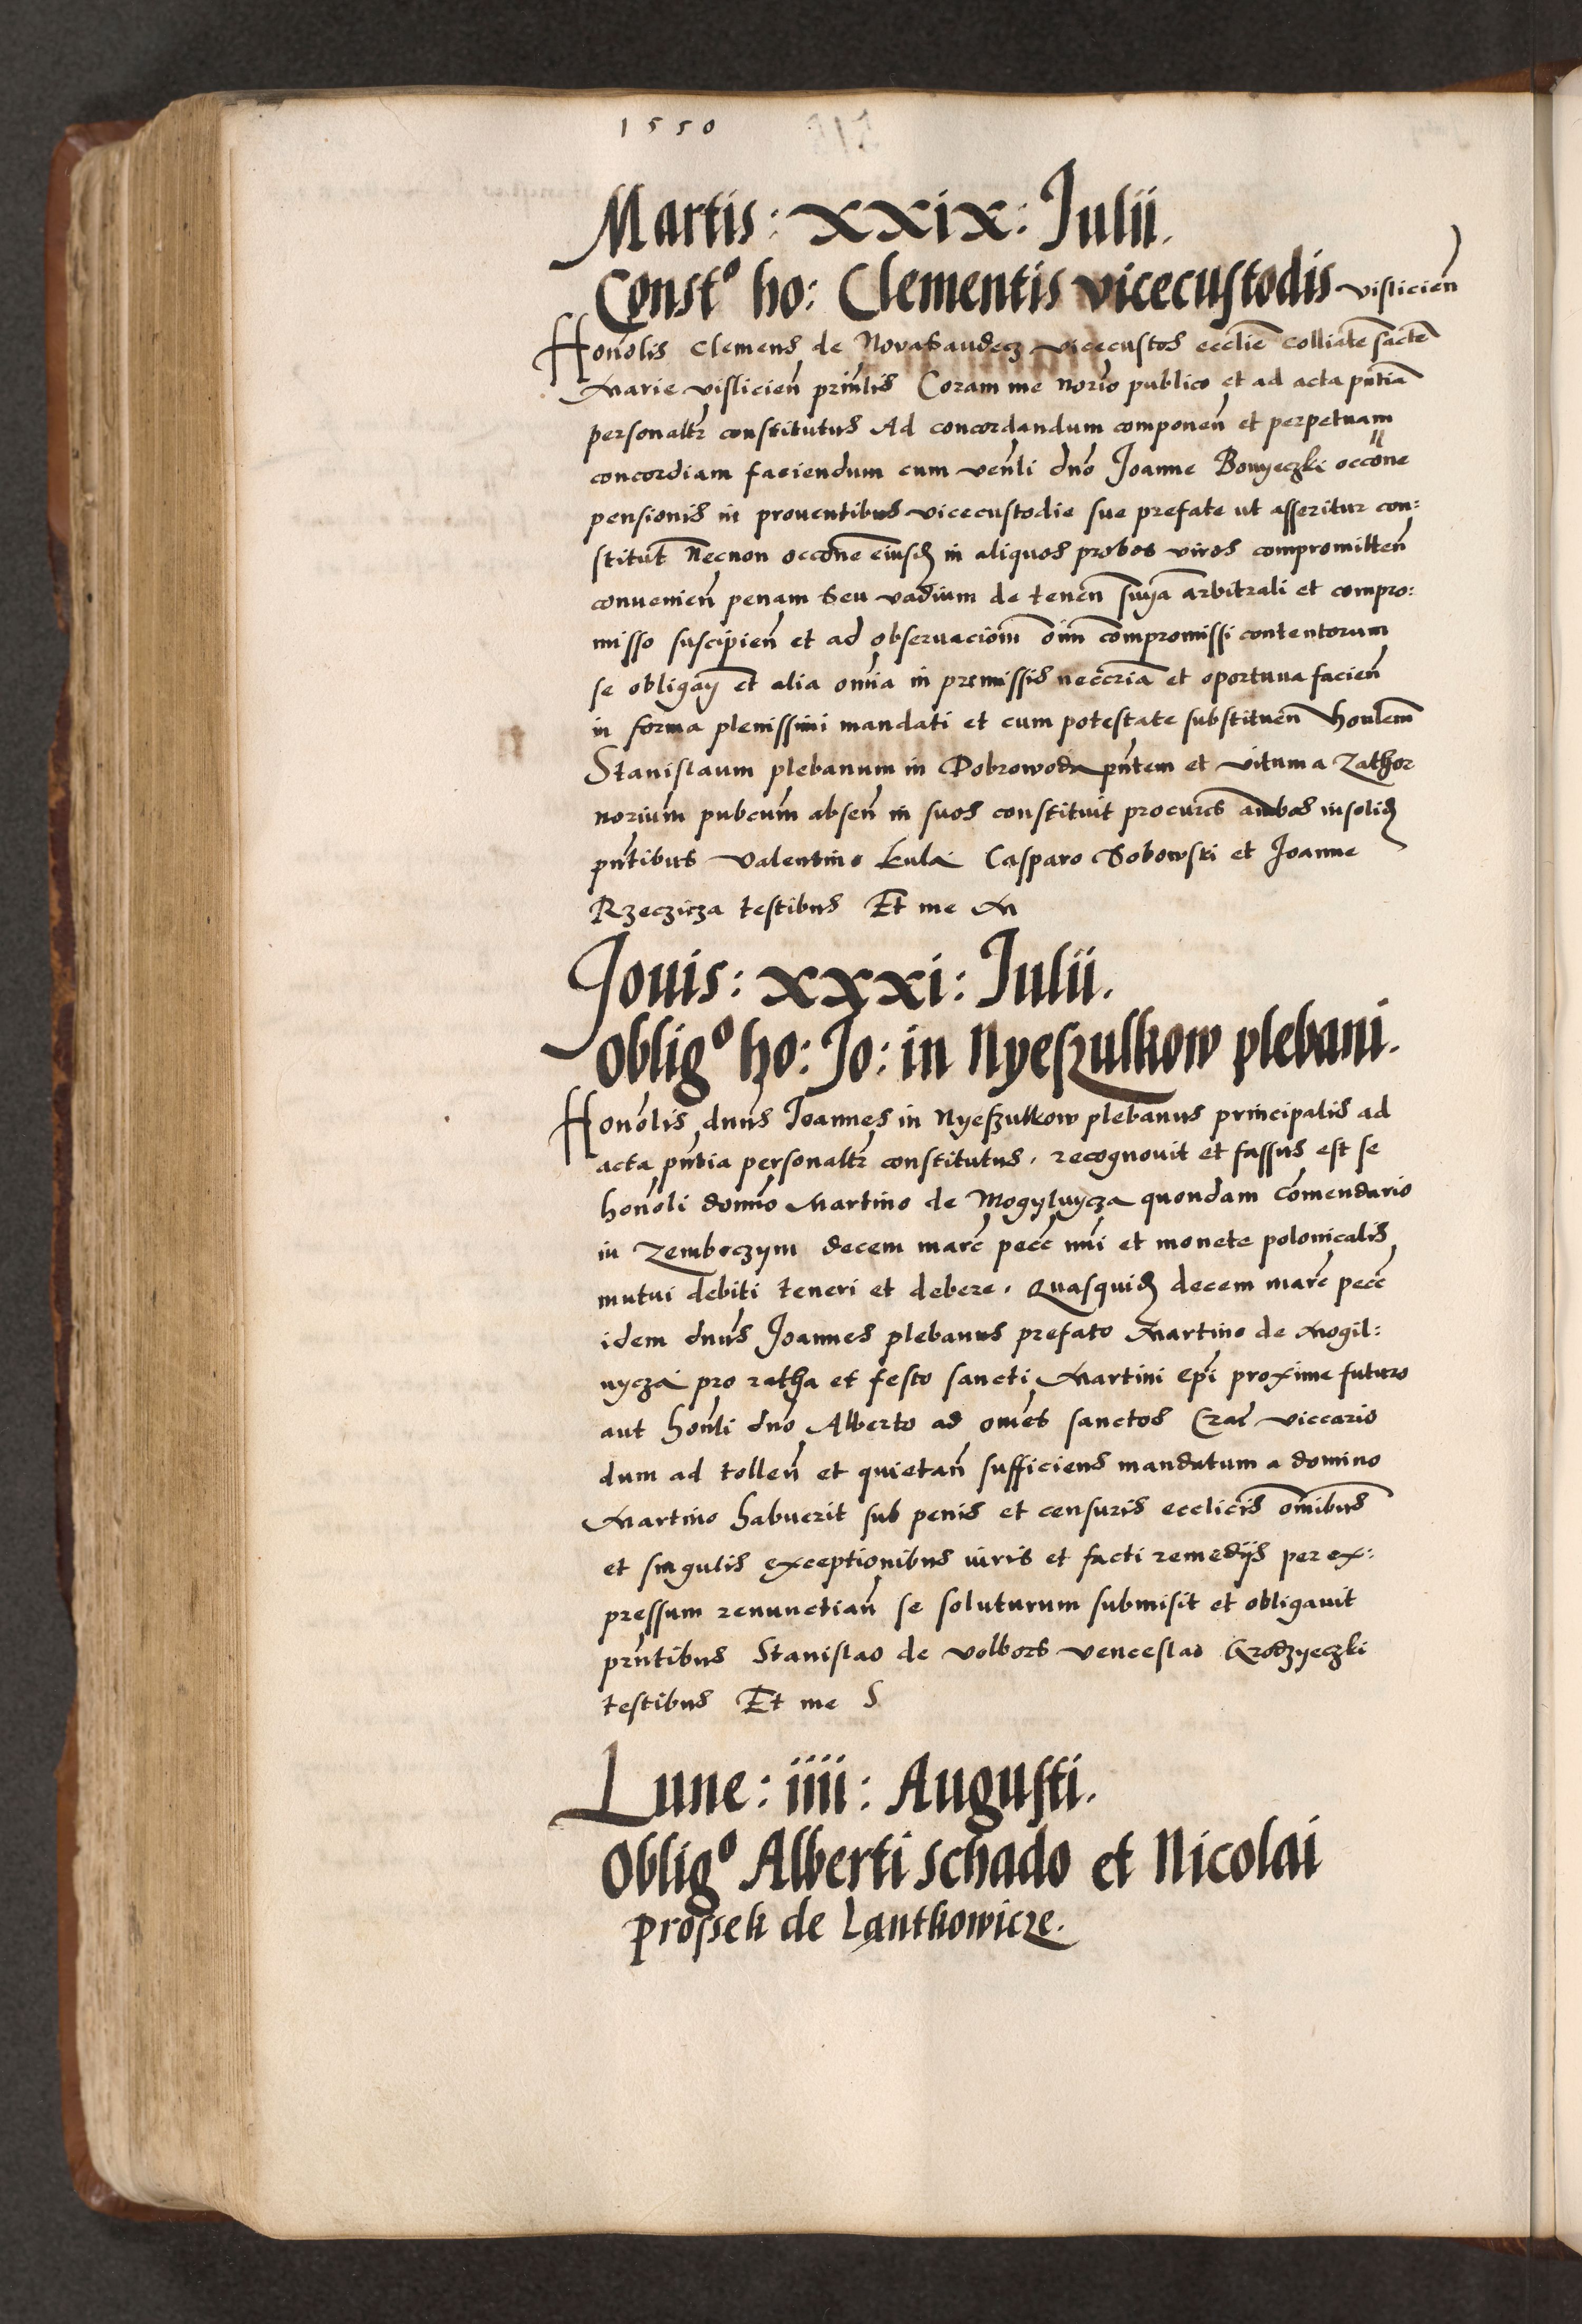 1550
Martis: xxix: Julii.
Constᵒ ho: Clementis vicecustodis vislicieñ
Honolis Clemens de Nova Sandecz vicecustos ecclie colliate sacte
Marie vislicieñ prinlis Coram me norio publico et ad acta pntia
personaltr constitutus Ad concordandum componeñ et perpetuam
concordiam faciendum cum venli dno Joanne Bonyeczki occone
pensionis in proventibus vicecustodie sue prefate ut asseritur con:
stitut Necnon occone eiusd in aliquos probos viros compromitteñ
convenieñ penam seu vadium de teneñ snya arbitrali et compro:
misso suscipieñ et ad observaciom oim compromissi contentorum
se obligañ et alia omia in premissis neccria et oportuna facieñ
in forma plenissimi mandati et cum potestate substitueñ honlem
Stanislaum plebanum in Dobrowoda pntem et vitum a Zathor
norium pubcum abseñ in suos constituit procurcs ambos insolid
pntibus Valentino Kula Casparo Sobowski et Joanne
Rzeczicza testibus Et me M
Jovis: xxxi: Julii.
Obligᵒ ho: Jo: in Nyeszulkow plebani.
Honolis dnus Joannes in Nyeszulkow plebanus principalis ad
acta pntia personaltr constitutus. recognovit et fassus est se
honoli domino Martino de Mogylnycza quondam Comendario
in Zemboczym decem marc pecc nmi et monete polonicalis
mutui debiti teneri et debere. Quasquid decem marc pecc
idem dnus Joannes plebanus prefato Martino de Mogil:
nycza pro ratha et festo sancti Martini epi proxime futuro
aut honli dno Alberto ad omes sanctos Crac viccario
dum ad tolleñ et quietañ sufficiens mandatum a domino
Martino habuerit sub penis et censuris ecclicis omibus
et singulis exceptionibus iuris et facti remedijs per ex:
pressum renunctiañ se soluturum submisit et obligavit
prntibus Stanislao de volbors venceslao Grodzyeczki
testibus Et me S
Lune: iiii: Augusti.
Obligᵒ Alberti schado et Nicolai
prossek de Lantkowicze.